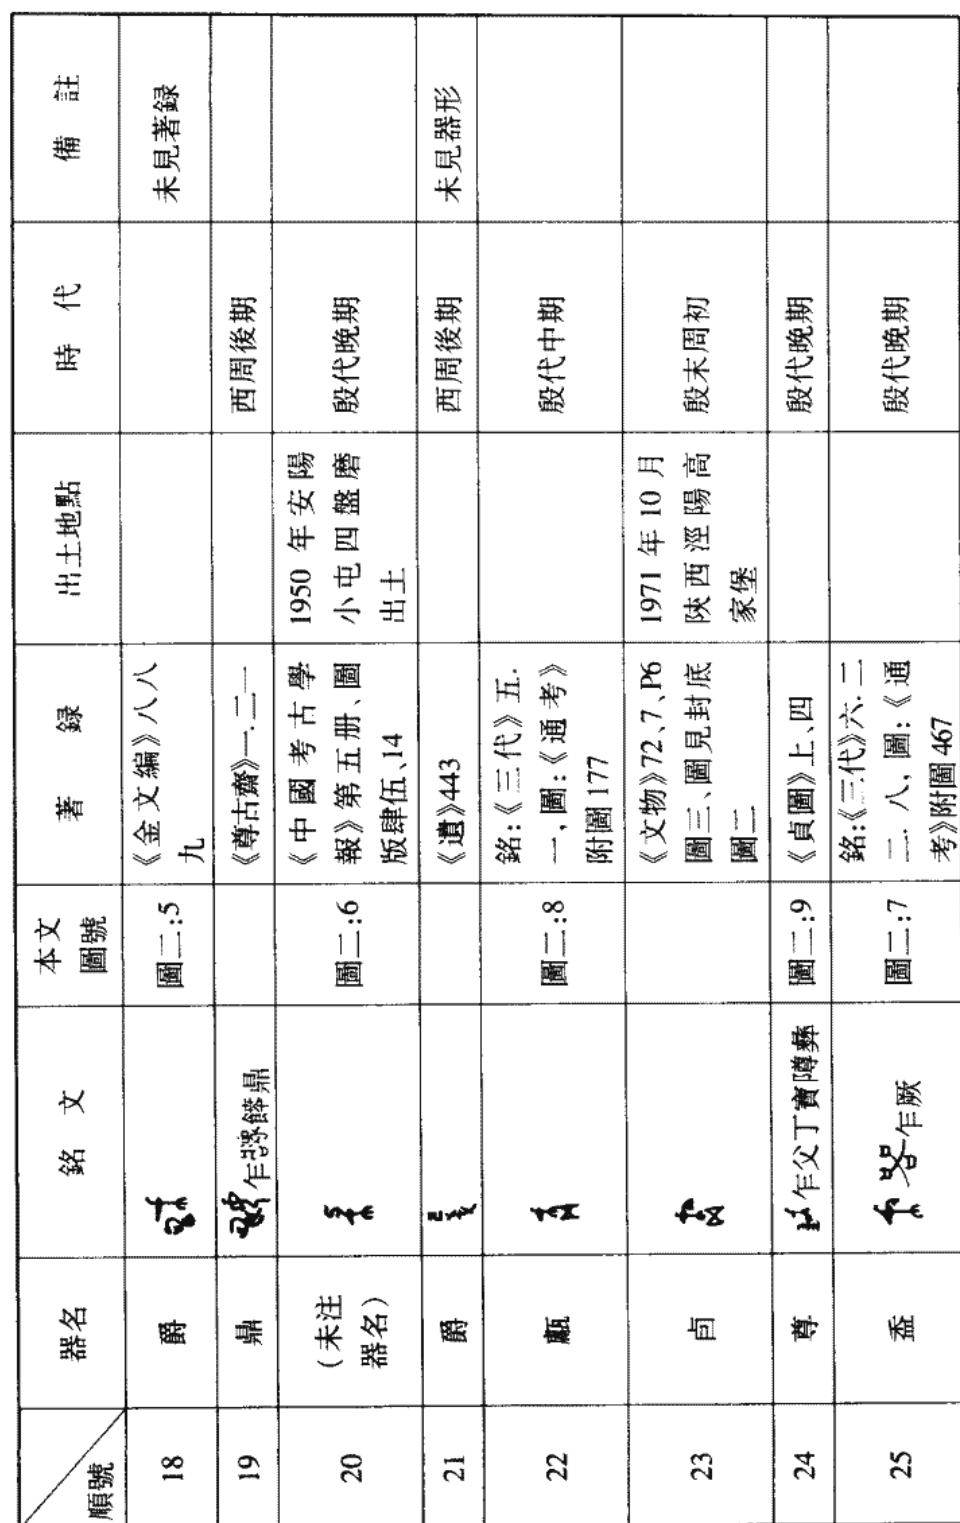 順號 器名 銘 文 本文圖號 著 録 出土地點 時 代 備 註
18 爵 圖二:5 《金文編》八八九 未見著録
19 鼎 乍 鼎 《尊古齋》一.二一 西周後期
20 (未注器名) 圖二:6 《中國考古學報》第五册、圖版肆伍、14 1950 年安陽小屯四盤磨出土 殷代晚期
21 爵 《遺》443 西周後期 未見器形
22 甗 圖二:8 銘:《三代》五.一,圖:《通考》附圖 177 殷代中期
23 卣 《文物》72、7、P6圖三、圖見封底圖二 1971 年 10 月陝西涇陽高家堡 殷末周初
24 尊 乍父丁寶隣彝 圖二:9 《貞圖》上、四 殷代晚期
25 盉 乍厥 圖二:7 銘:《三代》六.二二.八,圖:《通考》附圖 467 殷代晚期